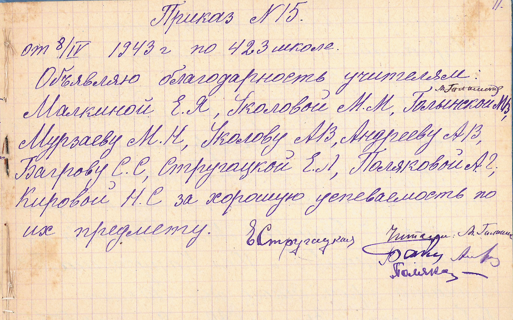 11.
Приказ N15.
от 8/IV 1943 г по 423 школе.
Объявляю благодарность учителям:
Малкиной Е.Я, Уколовой М.М,
Мурзаеву М.Н, Уколову АВ, Андрееву АВ,
Багрову С.С, Стругацкой Е.Л, Паляковой А.Г,
Кировой Н.С за хорошую успеваемость по
их предмету.
ЕСтругацкая Читали: